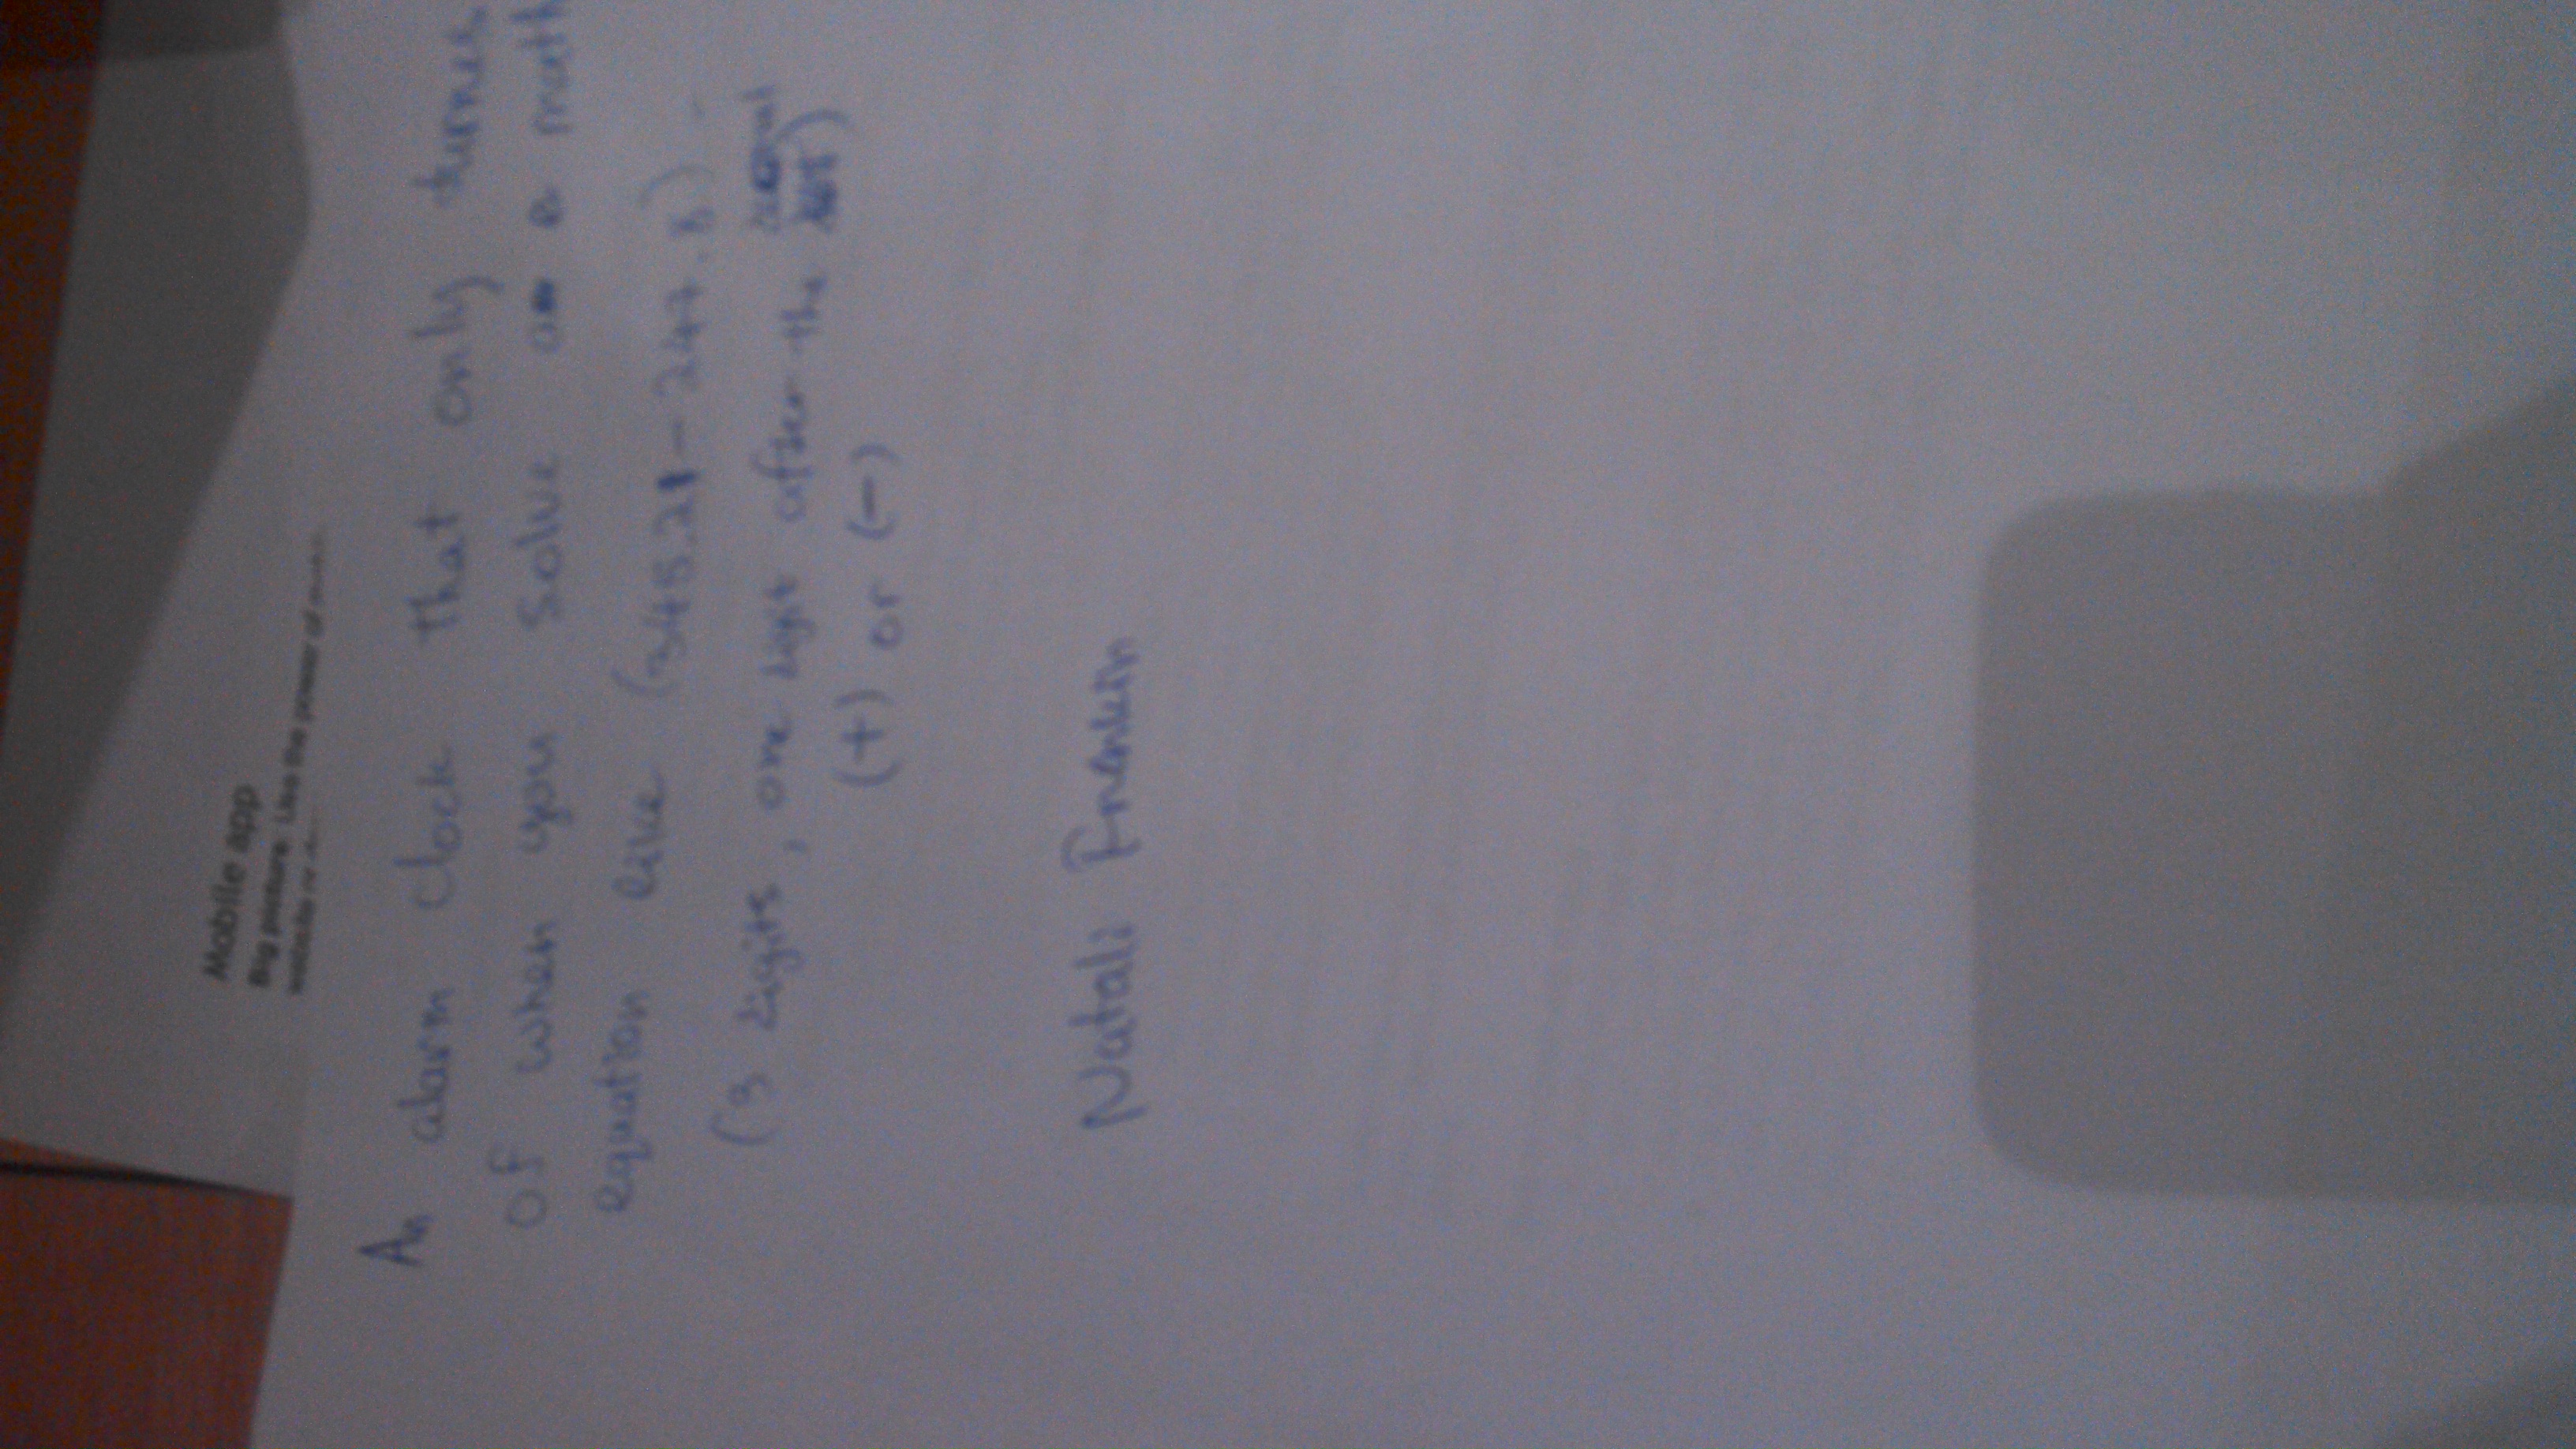 Mobile app
Big picture: Use the power of
website or
An alarm clock that only turnes
of when you solve a math
equation like (345.21 - 247.8)
(3 digits, one digit after the
(+) or (-)
Natali Frankin